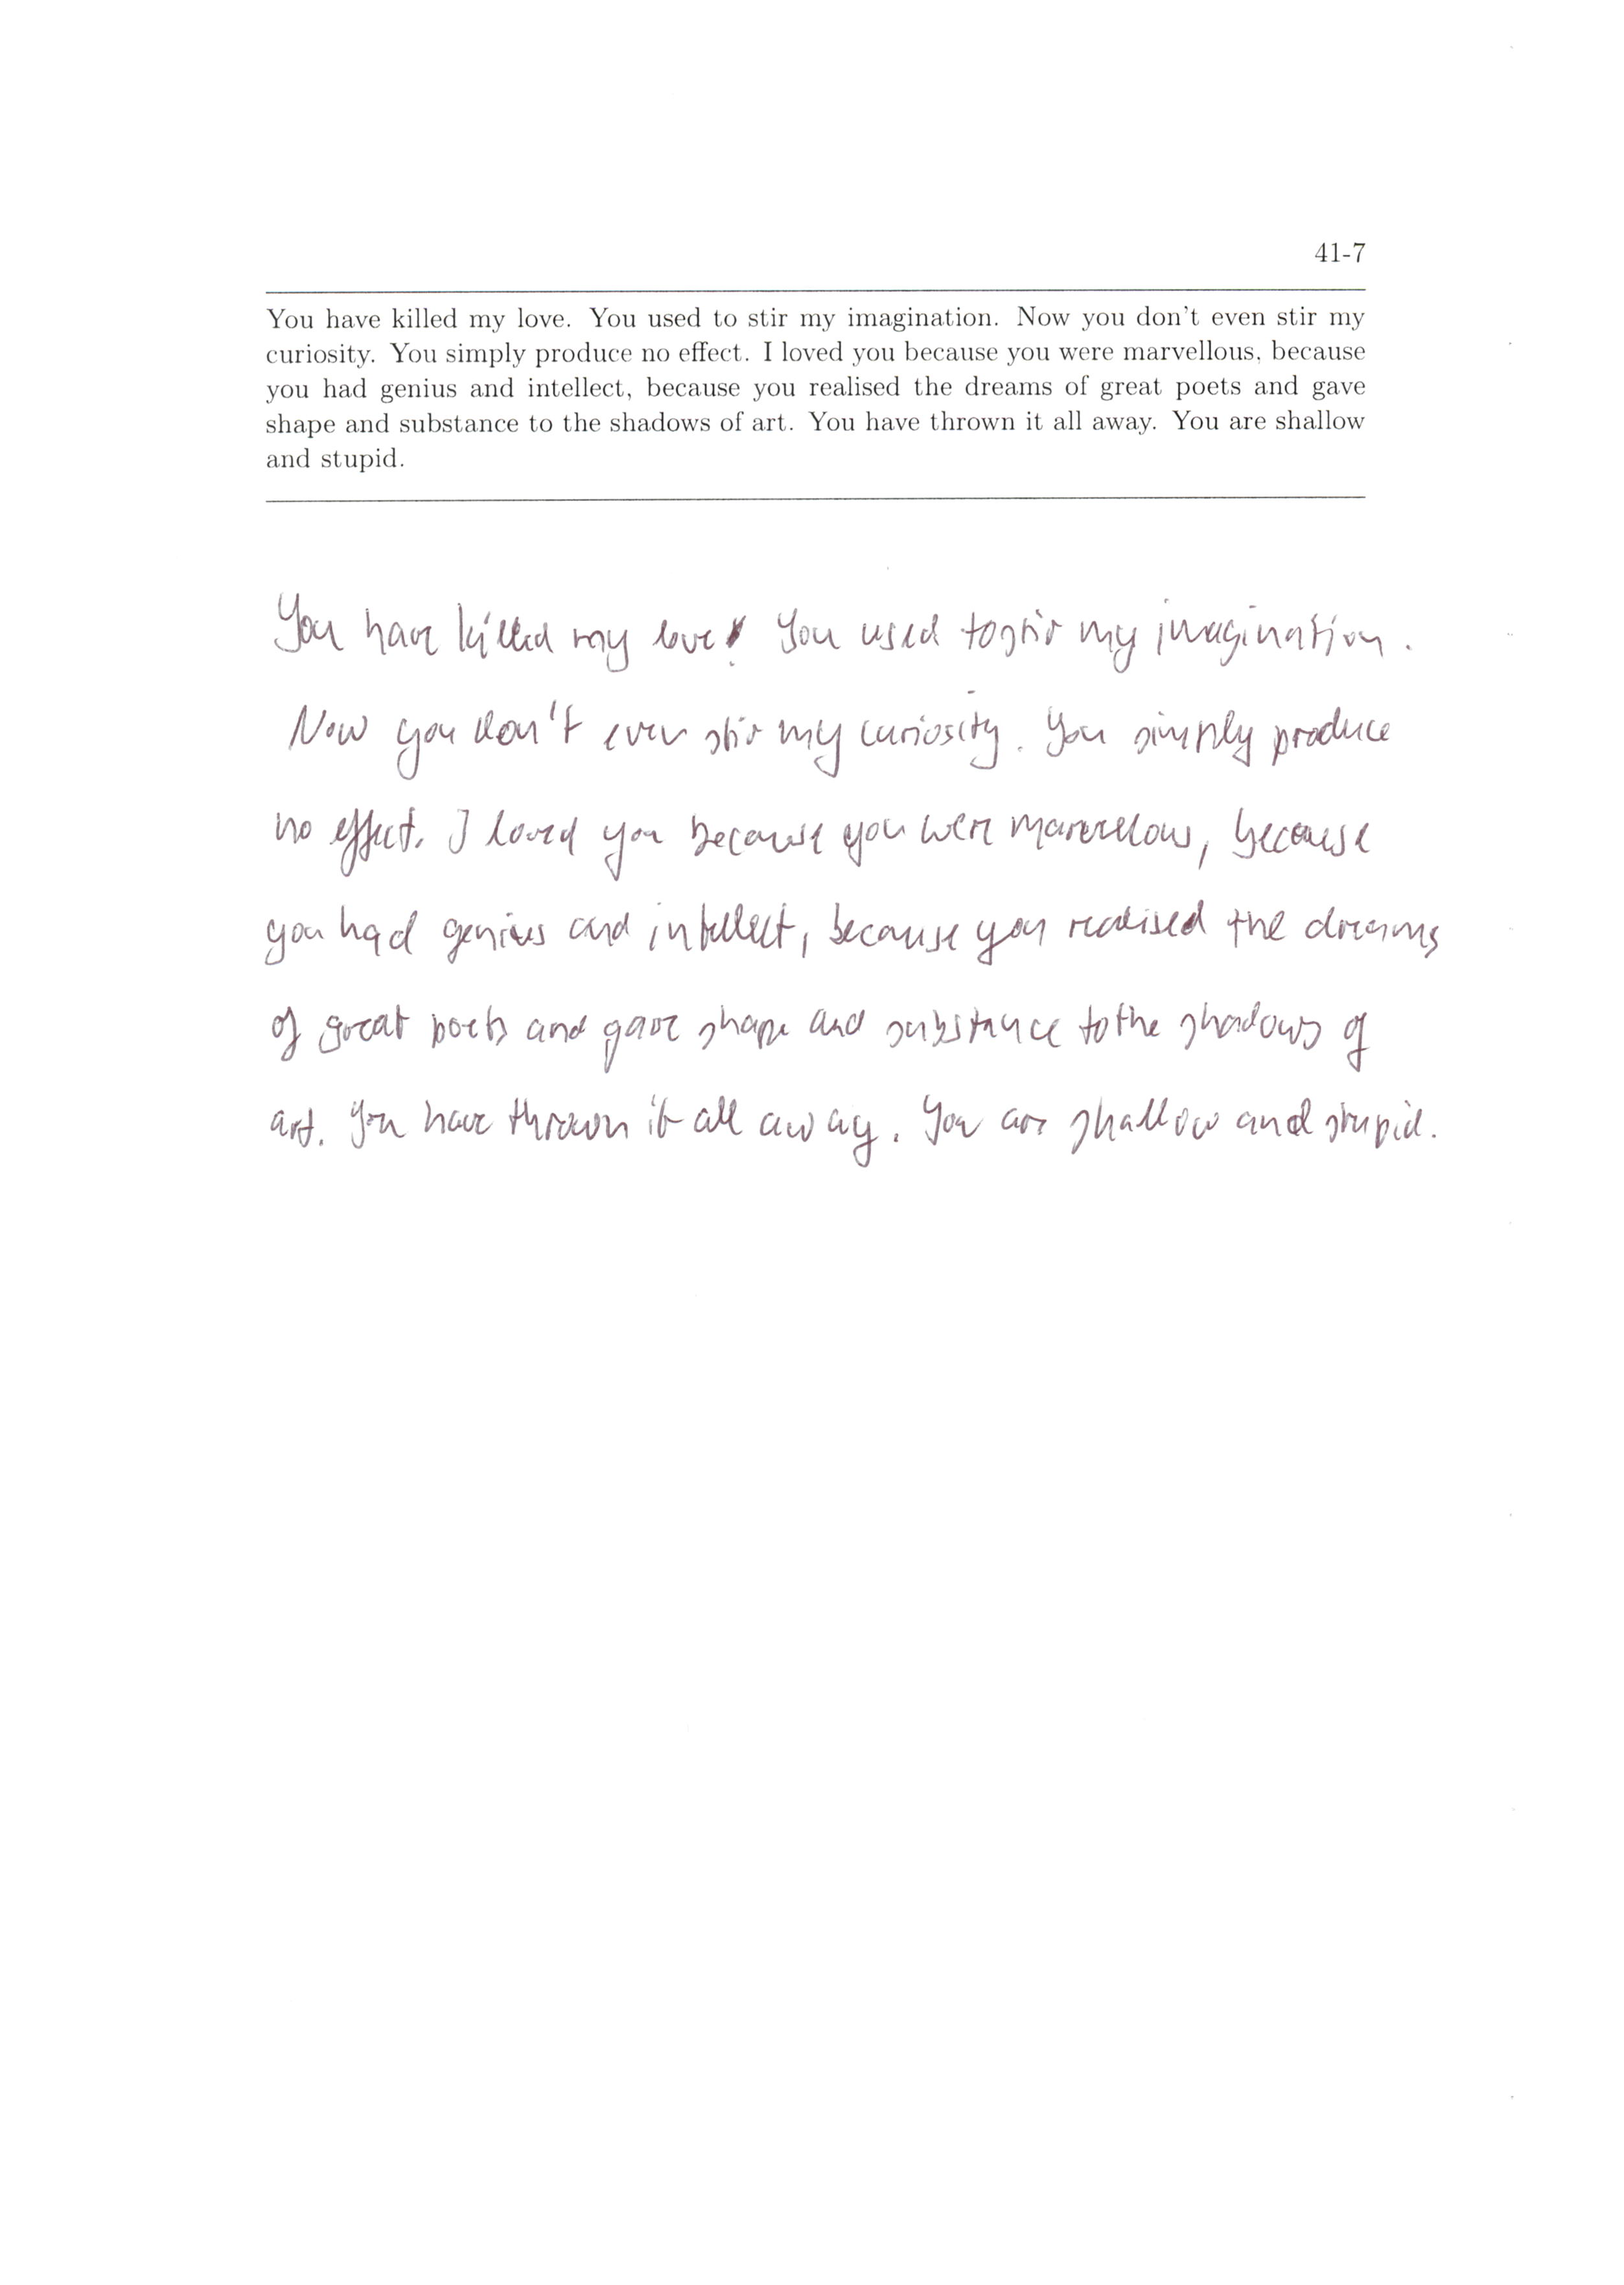 41-7
You have killed my love. You used to stir my imagination. Now you don't even stir my
curiosity. You simply produce no effect. I loved you because you were marvellous, because
you had genius and intellect, because you realised the dreams of great poets and gave
shape and substance to the shadows of art. You have thrown it all away. You are shallow
and stupid.
You have killed my love! You used to stir my imagination.
Now you don't even stir my curiosity. You simply produce
no effect. I loved you because you were marvellous, because
you had genius and intellect, because you realised the dreams
of great poets and gave shape and substance to the shadows of
art. You have thrown it all away. You are shallow and stupid.